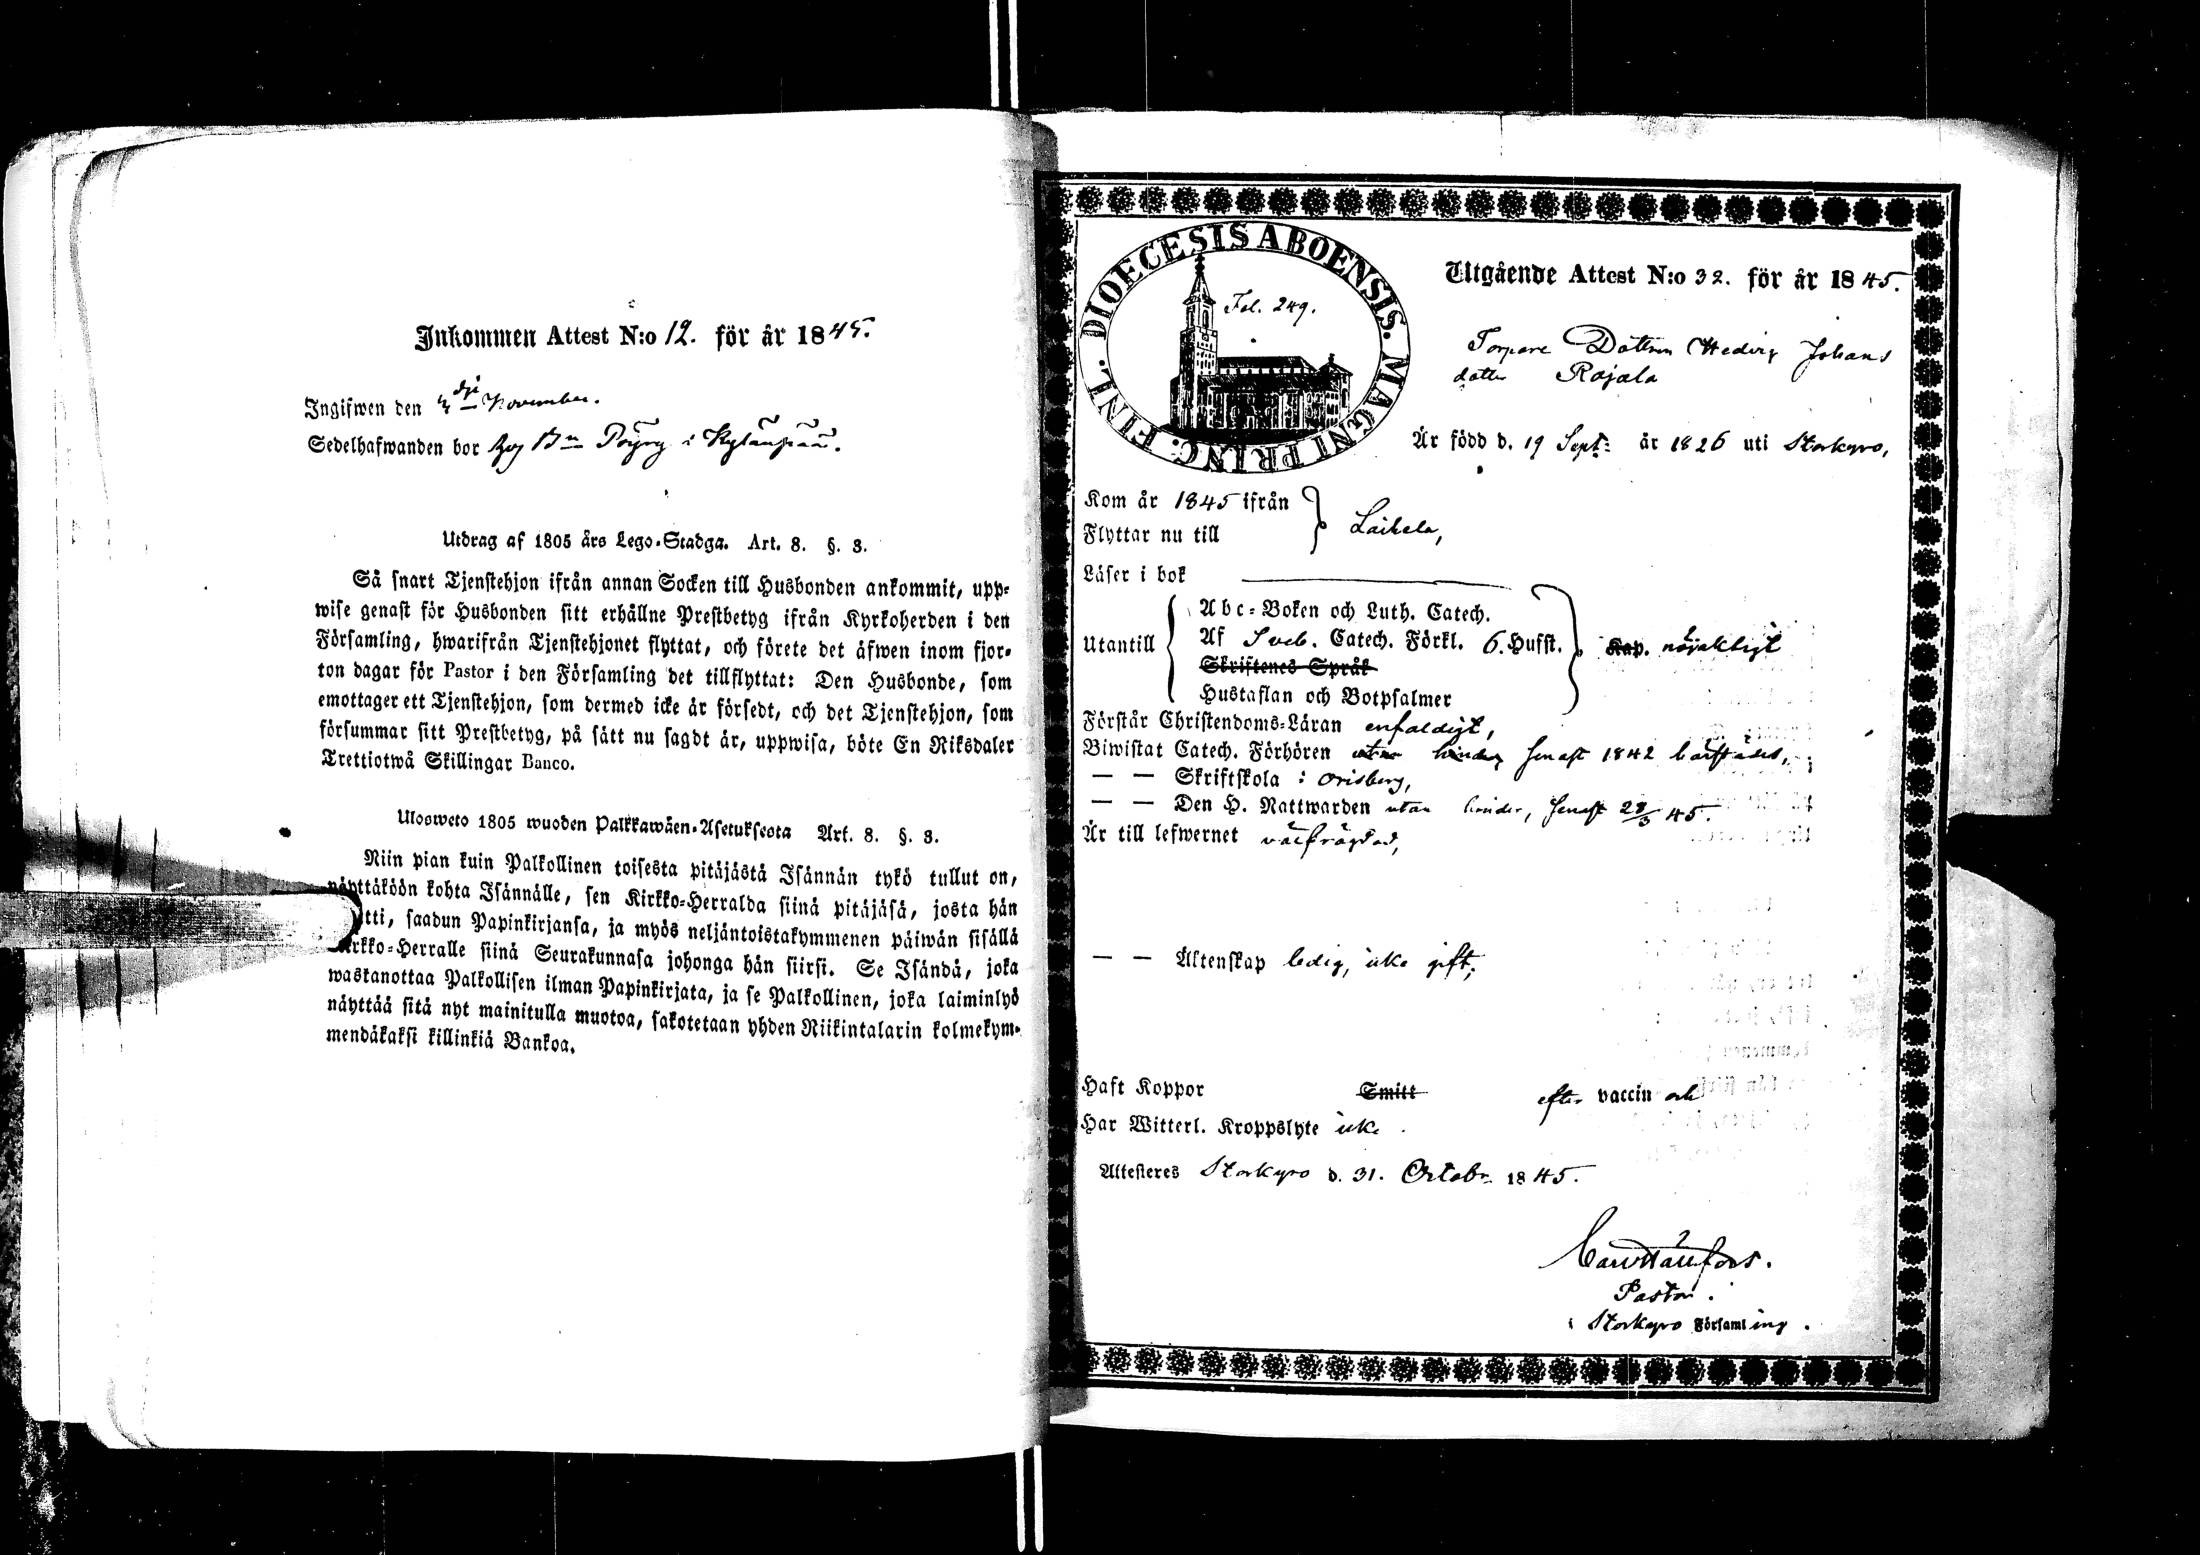 Inkommen Attest N:o 12. för år 1845.
Ingifwen den 4 dje November.
Sedelhafwanden bor hos
Utdrag af 1805 års Lego-Stadga. Art. 8. §. 3.
Så snart Tjenstehjon ifrån annan Socken till Husbonden ankommit, upp-
wise genast för Husbonden sitt erhållne Prestbetyg ifrån Kyrkoherden i den
Församling, hwarifrån Tjenstehjonet flyttat, och förete det äfwen inom fjor-
ton dagar för Pastor i den Församling det tillflyttat: Den Husbonde, som
emottager ett Tjenstehjon, som dermed icke är försedt, och det Tjenstehjon, som
försummar sitt Prestbetyg, på sätt nu sagdt är, uppwisa, böte En Riksdaler
Trettiotwå Skillingar Banco.
Ulosweto 1805 wuoden Palkkawäen-Asetuksesta Art. 8. §. 3.
Niin pian kuin Palkollinen toisesta pitäjästä Isännän tykö tullut on,
näyttäköön kohta Isännälle, sen Kirkko-Herralda siinä pitäjäsä, josta hän
saadun Papinkirjansa, ja myös neljäntoistakymmenen päiwän sisällä
Kirkko-Herralle siinä Seurakunnasa johonga hän siirsi. Se Isändä, joka
wastanottaa Palkollisen ilman Papinkirjata, ja se Palkollinen, joka laiminlyö
näyttää sitä nyt mainitulla muotoa, sakotetaan yhden Riikintalarin kolmekym-
mendäkaksi killinkiä Bankoa.
DIOECESIS ABOENSIS. MAGNI PRINC. FINL.
Fol. 249.
Utgående Attest N:o 32. för år 1845.
Torpare Dottren Hedvig Johans
dotter Rajala
Är född d. 19 Sept: år 1826 uti Storkyro,
Kom år 1845 ifrån
Flyttar nu till
Laihela,
Läser i bok
Utantill
Abc-Boken och Luth. Catech.
Af Sveb. Catech. Förkl. 6. Hufst. Kap. nöjaktigt
Skriftenes Språk
Hustaflan och Botpsalmer
Förstår Christendoms-Läran enfaldigt,
Biwistat Catech. Förhören utan hinder, senast 1842
— — Skriftskola i Orisberg,
— — Den H. Nattwarden utan hinder, senast 45.
Är till lefwernet välfrägdad,
— — Äktenskap ledig, icke gift,
Haft Koppor Smitt efter vaccin och
Har Witterl. Kroppslyte icke.
Attesteres Storkyro d. 31. Octobr. 1845.
Pastor.
i Storkyro Församling.